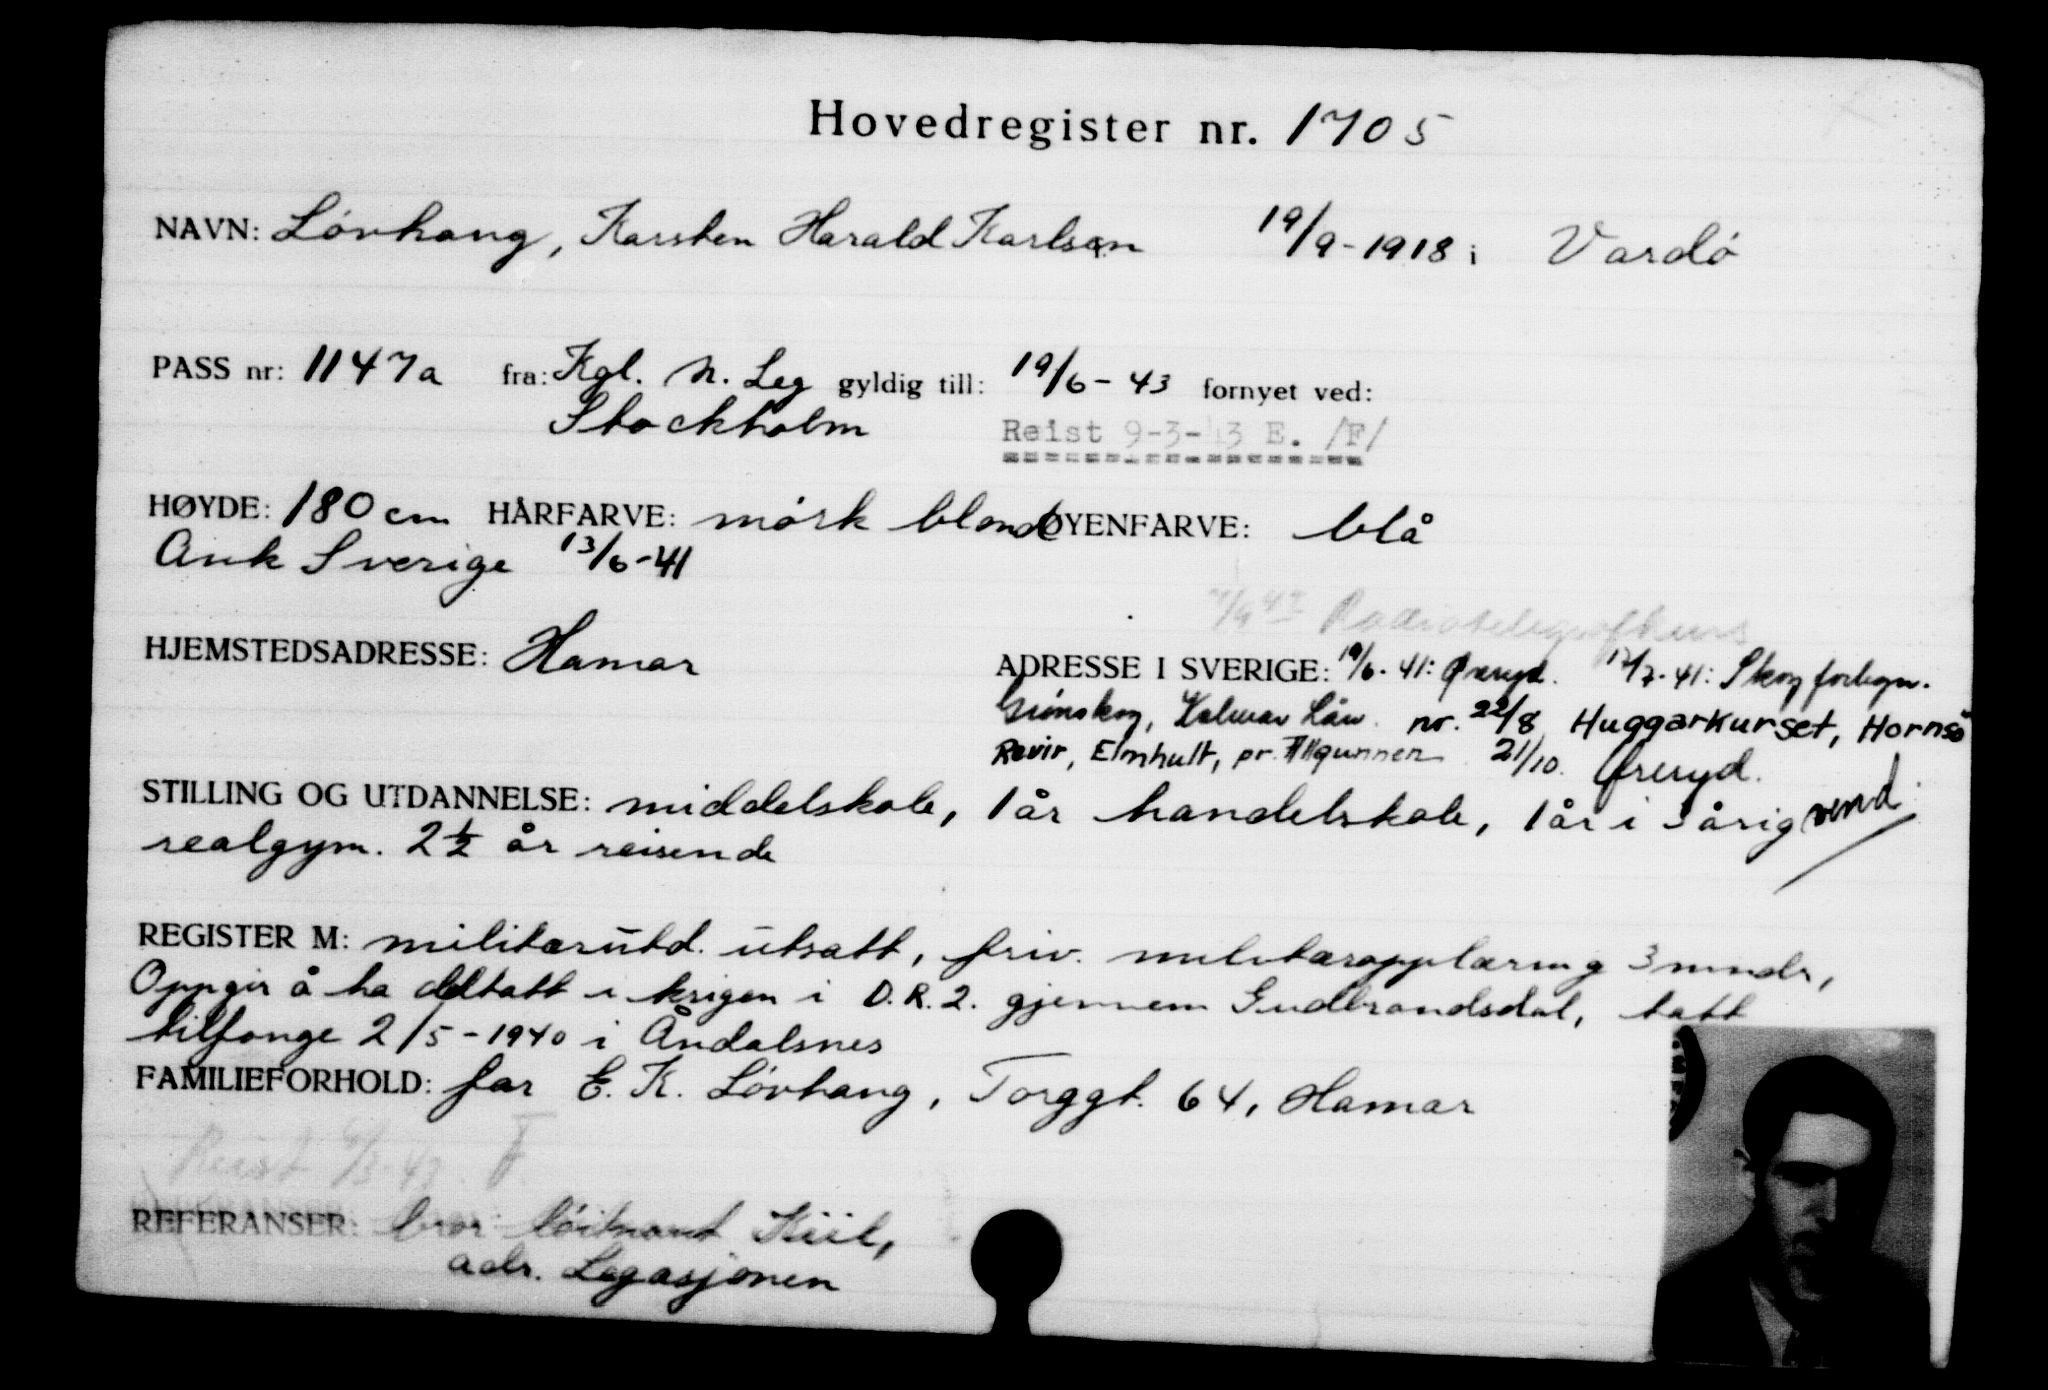 Hovedregister nr. 1705
NAVN: Løvhaug, Karsten Harald Karlsen 19/9-1918 i Vardø
PASS nr: 1147a fra: Kgl. N. Leg gyldig till: 19/6-43 fornyet ved:
Stockholm
Reist 9-3-43 E. /F/
HØYDE: 180 cm HÅRFARVE: mørk blond ØYENFARVE: blå
Ank Sverige 13/6-41
Radiotelegrafkurs
HJEMSTEDSADRESSE: Hamar
ADRESSE I SVERIGE: 19/6-41: Øreryd. 17/7-41: Skogforlegn.
Grønskog, Kalmar Län. nr. 22/8 Huggarkurset, Hornsö
Revir, Elmhult, pr. Allgunnen 21/10. Øreryd.
vend
STILLING OG UTDANNELSE: middelskole, 1 år handelskole, 1 år i 3 årig
realgym. 2½ år reisende
REGISTER M: militærutd. utsatt, friv. militæropplæring 3 mndr,
Oppgir å ha deltatt i krigen i D.R.2. gjennem Gudbrandsdal, tatt
tilfange 2/5-1940 i Åndalsnes
FAMILIEFORHOLD: far E. K. Løvhaug, Torggt. 64, Hamar
Reist 9/3-43. F.
REFERANSER: bror løitnant Kiil,
adr. Legasjonen